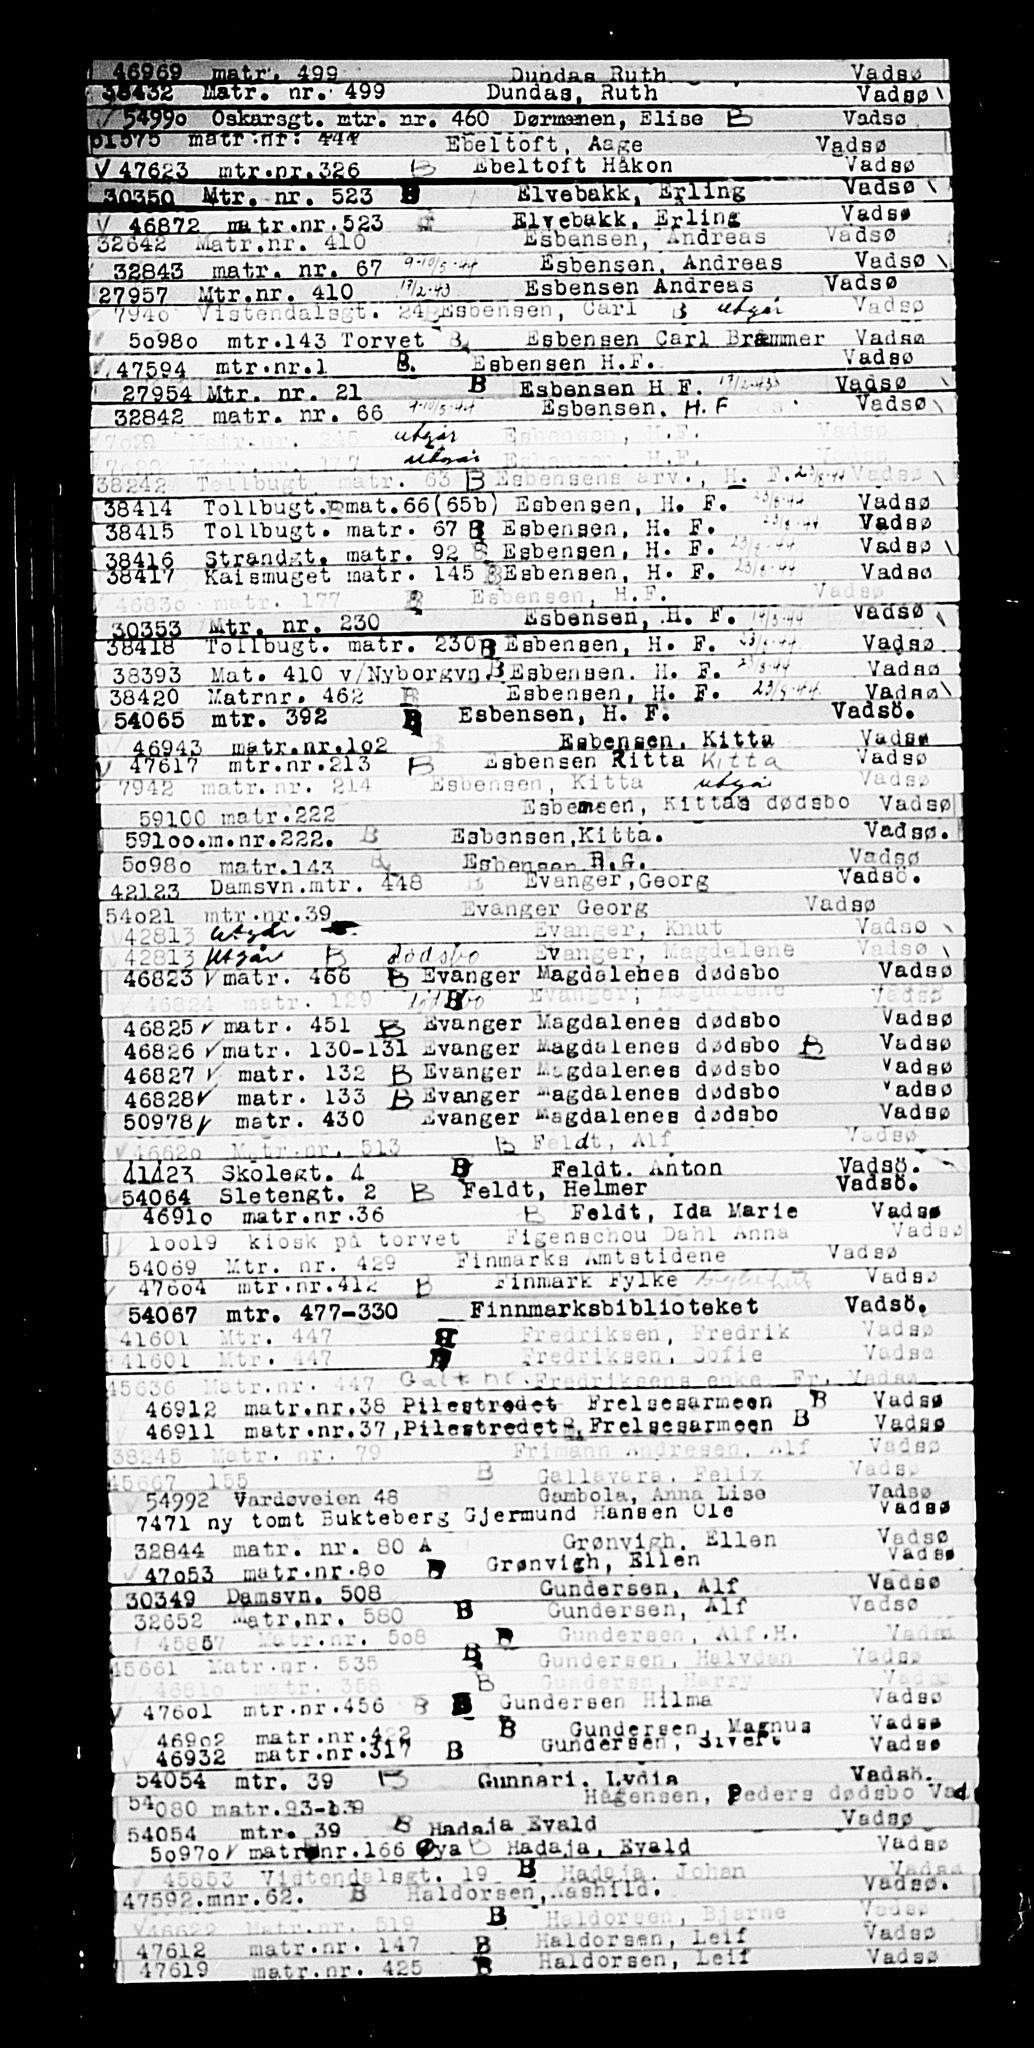 46969 matr. 499 Dundas Ruth Vadsø
38432 Matr. nr. 499 Dundas, Ruth Vadsø \
√ 5499o Oskarsgt. mtr. nr. 460 Dørmænen, Elise B Vadsø
51575 matr.nr: 444 Ebeltoft, Aage Vadsø
√ 47623 mtr.nr.326 B Ebeltoft Håkon Vadsø
30350 Mtr. nr. 523 B Elvebakk, Erling Vadsø \
√ 46872 matr.nr.523 Elvebakk, Erling Vadsø
32642 Matr.nr. 410 Esbensen, Andreas Vadsø
32843 matr. nr. 67 9-10/5-44 Esbensen, Andreas Vadsø \
27957 Mtr.nr. 410 17/2-43 Esbensen Andreas Vadsø
794o Vistendalsgt. 24 B Esbensen, Carl B utgår Vadsø
5o98o mtr.143 Torvet B Esbensen Carl Bræmmer Vadsø
47594 mtr.nr.1 B. Esbensen H.F. Vadsø
27954 Mtr. nr. 21 B Esbensen H F. 17/2-43 Vadsø \
32842 matr. nr. 66 9-10/5-44 Esbensen, H. F Vadsø \
7o29 Matr.nr. 245 utgår Esbensen, H.F. Vadsø
Matr.nr. 177 utgår Esbensen, H.F. Vadsø
38242 Tollbugt matr. 63 B Esbensens arv., H. F. 23/8-44 Vadsø \
38414 Tollbugt. B mat.66(65b) Esbensen, H. F. 23/8-44 Vadsø
38415 Tollbugt. matr. 67 B Esbensen, H. F. 23/8-44 Vadsø
38416 Strandgt. matr. 92 B Esbensen, H. F. 23/8-44 Vadsø \
38417 Kaismuget matr. 145 B Esbensen, H. F. 23/8-44 Vadsø
4683o matr. 177 B Esbensen, H.F. Vadsø
30353 Mtr. nr. 230 Esbensen, H. F. 14/3-44 Vadsø \
38418 Tollbugt. matr. 230 B Esbensen, H. F. 23/8-44 Vadsø
38393 Mat. 410 v/Nyborgvn. B Esbensen. H. F. 23/8-44 Vadsø
38420 Matrnr. 462 B Esbensen, H. F. 23/8-44. Vadsø \
54065 mtr. 392 B Esbensen, H. F. Vadsö.
46943 matr.nr.1o2 Esbensen, Kitta Vadsø
√ 47617 mtr.nr.213 B Esbensen Ritta Kitta Vadsø
7942 matr.nr. 214 Esbensen, Kitta utgår Vadsø
59100 matr.222 Esbensen, Kittas dødsbo Vadsø
591oo.m.nr.222. B Esbensen,Kitta. Vadsø.
5o98o matr.143 B Esbensen R.G. Vadsø
42123 Damsvn.mtr. 448 B Evanger,Georg Vadsö.
54o21 mtr.nr.39 Evanger Georg Vadsø
42813 utgår Evanger, Knut Vadsø \
42813 utgår B dødsbo Evanger, Magdalene Vadsø \
46823 √ matr. 466 B Evanger Magdalenes dødsbo Vadsø
46824 matr. 129 dødsbo B Evanger, Magdalene Vadsø
46825 √ matr. 451 B Evanger Magdalenes dødsbo Vadsø
46826 √ matr. 130-131 Evanger Magdalenes dødsbo B Vadsø
46827 √ matr. 132 B Evanger Magdalenes dødsbo Vadsø
46828 √ matr. 133 B Evanger Magdalenes dødsbo Vadsø
50978 √ matr. 430 Evanger Magdalenes dødsbo Vadsø
√ 4662o Matr.nr. 513 B Feldt, Alf Vadsø
41423 Skolegt. 4 B Feldt. Anton Vadsö. \
54064 Sletengt. 2 B Feldt, Helmer Vadsö.
4691o matr.nr.36 B Feldt, Ida Marie Vadsø
1oo19 kiosk på torvet Figenschou Dahl Anna Vadsø
54069 Mtr. nr. 429 Finmarks Amtstidene Vadsø
476o4 mtr.nr.412 B Finmark Fylke Vadsø
54067 mtr. 477-330 Finnmarksbiblioteket Vadsö.
41601 Mtr. 447 B Fredriksen, Fredrik Vadsø
41601 Mtr. 447 B Fredriksen, Sofie Vadsø
45636 Matr.nr. 447 Galt nr. Fredriksens enke, Fr. Vadsø
46912 matr.nr.38 Pilestredet Frelsesarmeen B Vadsø
46911 matr.nr.37,Pilestredet Frelsesarmeen B Vadsø
38245 Matr. nr. 79 Frimann Andresen, Alf Vadsø
45667 155 B Gallavara, Felix Vadsø
54992 Vardøveien 48 Gambola, Anna Lise Vadsø
7471 ny tomt Bukteberg Gjermund Hansen Ole Vadsø
32844 matr. nr. 80 A Grønvigh. Ellen Vadsø
√ 47o53 matr.nr.8o B Grønvigh, Ellen Vadsø
30349 Damsvn. 508 Gundersen, Alf Vadsø
32652 Matr.nr. 580 B Gundersen, Alf Vadsø
45857 Matr.nr. 5o8 B Gundersen, Alf.H. Vadsø
45661 Matr.nr. 535 B Gundersen, Halvdan Vadsø
4681o matr. 358 B Gundersn, Harry Vadsø
√ 476o1 mtr.nr.456 B B Gundersen Hilma Vadsø
469o2 matr.nr.422 B Gundersen, Magnus Vadsø
46932 matr.nr.317 B Gundersen, Sivert Vadsø
54054 mtr. 39 B Gunnari. Lydia Vadsö.
54080 matr.93-139 Hågensen, Peders dødsbo Vad
54054 mtr. 39 B Hadaja Evald Vadsø
5o97o √ matr.nr.166 Øya B Hadaja, Evald Vadsø
45853 Vistendalsgt. 19 B Hadaja. Johan Vadsø
47592.mnr.62. B Haldorsen,Aashild. Vadsø.
√ 46622 Matr.nr. 519 B Haldorsen, Bjarne Vadsø
47612 matr.nr. 147 B Haldorsen, Leif Vadsø
47619 matr.nr. 425 B Haldorsen, Leif Vadsø